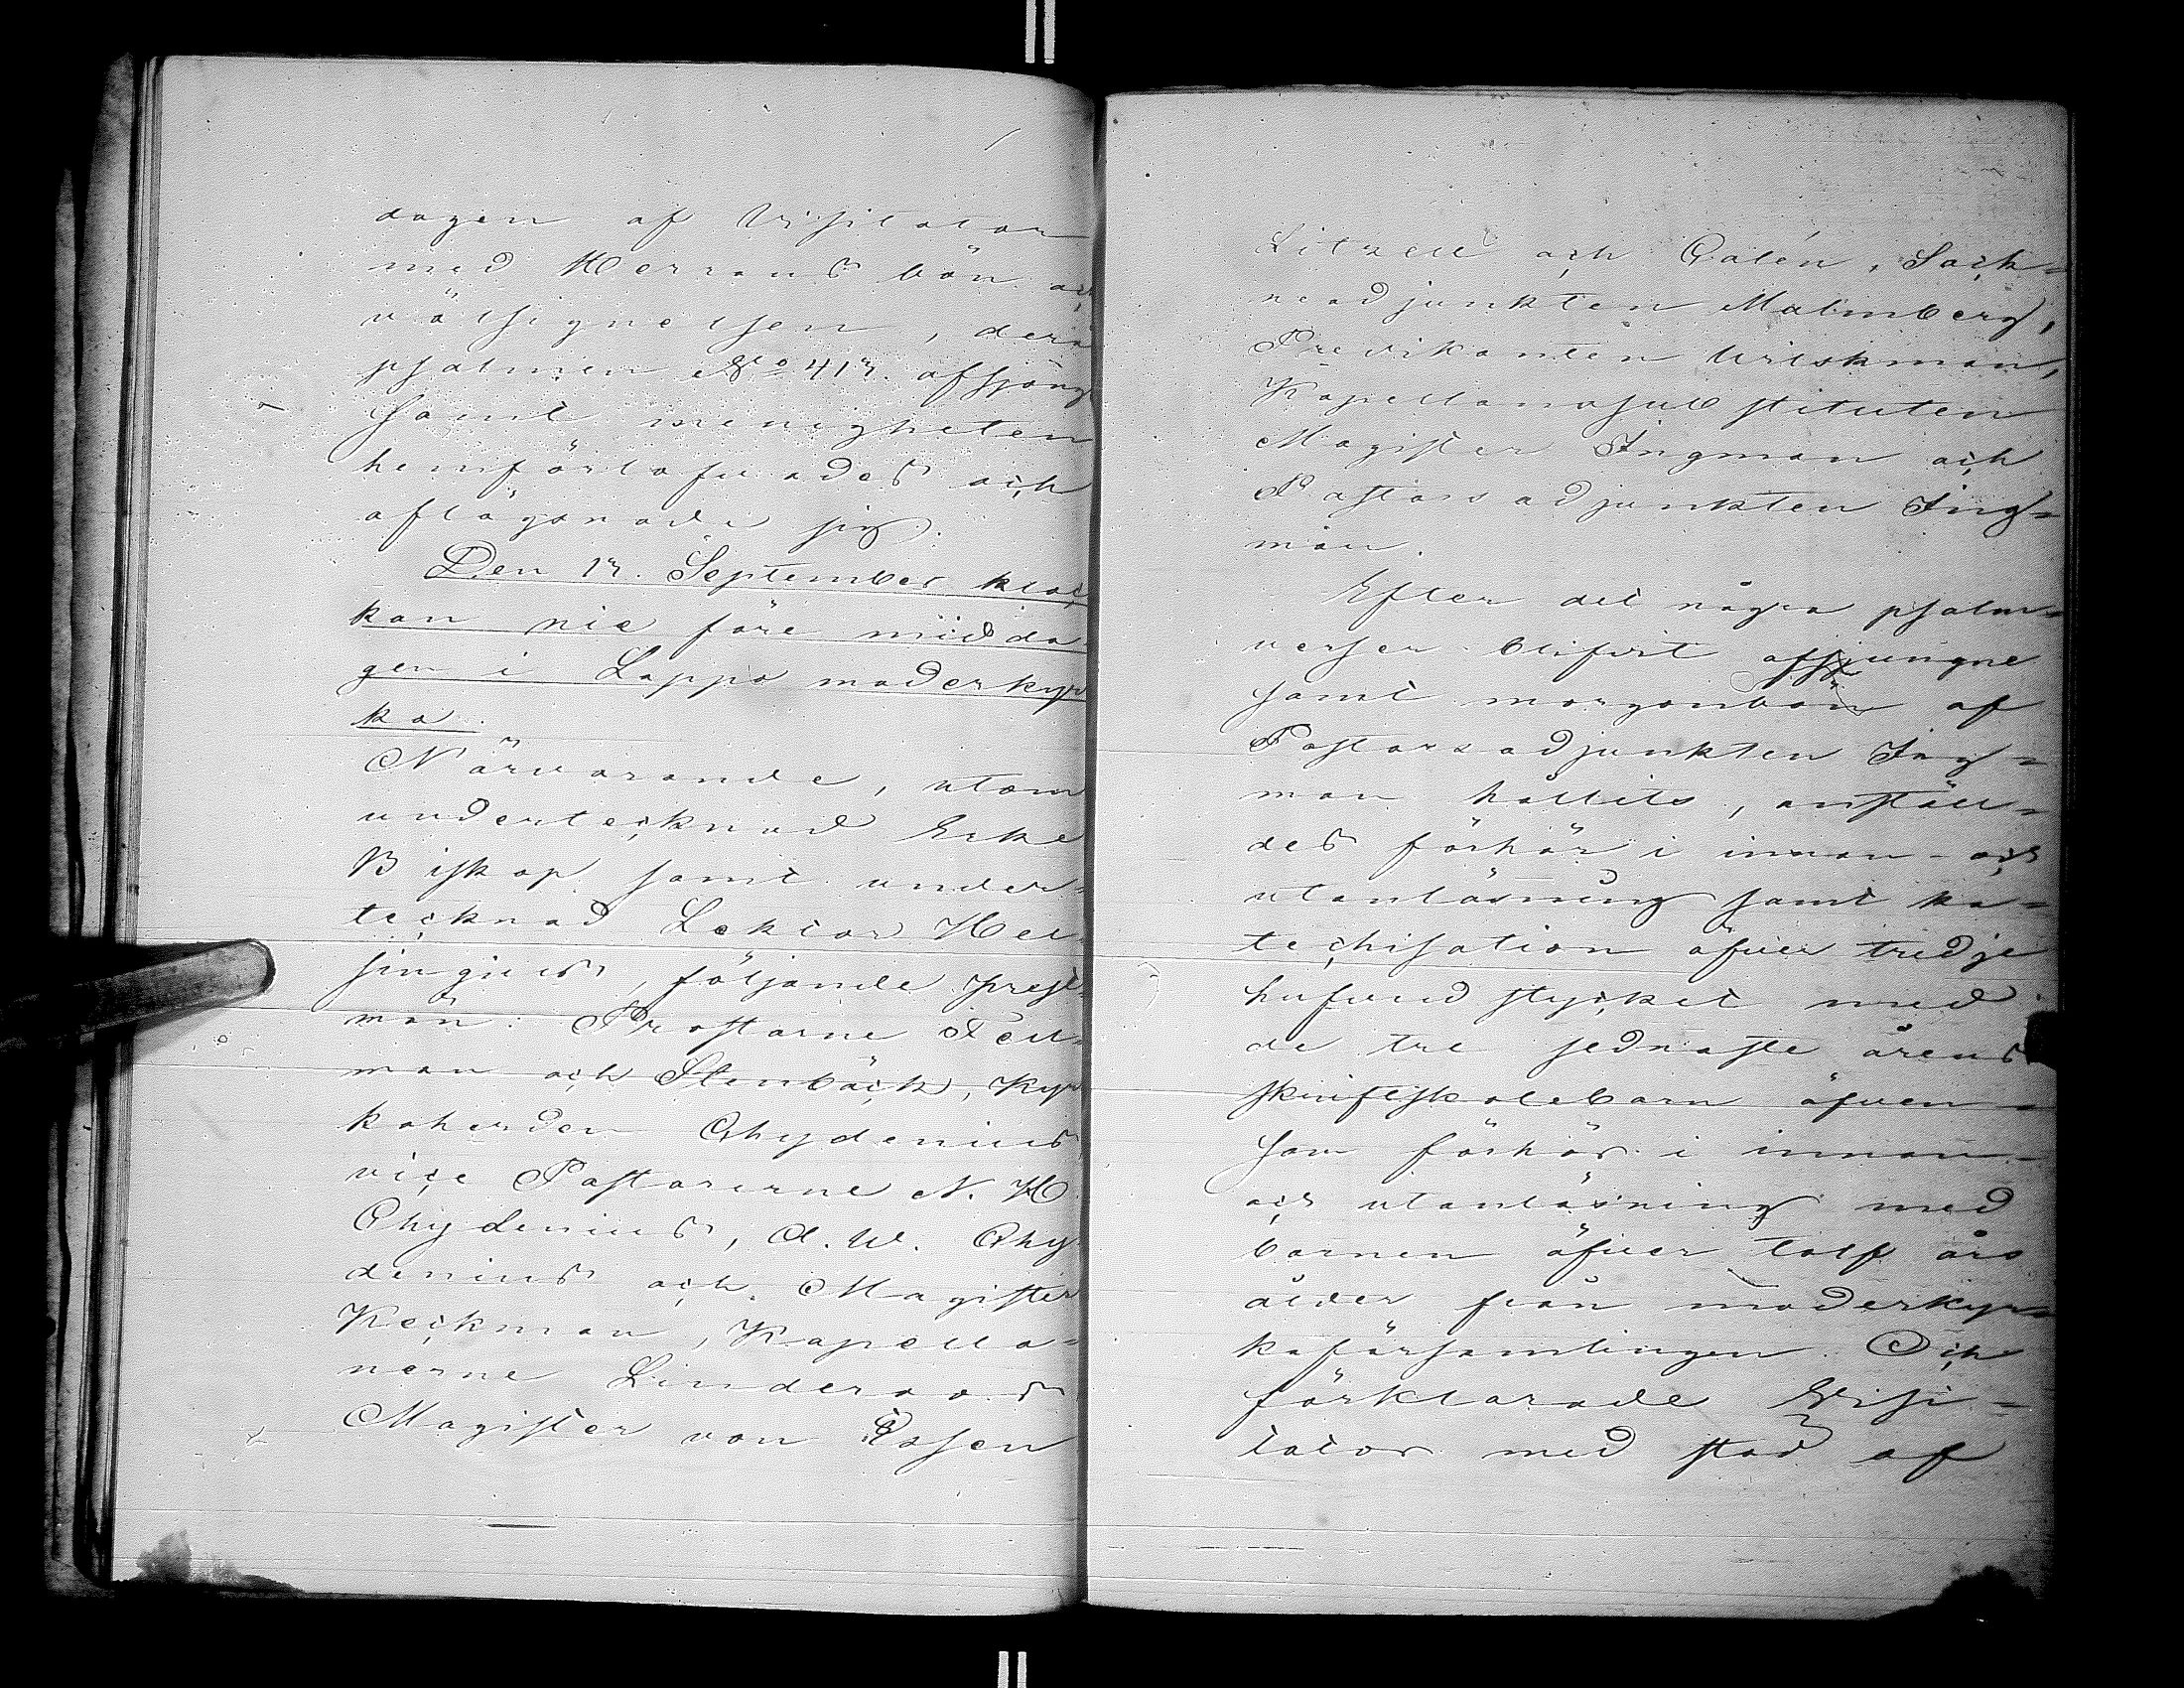 dagen af Visitator
med Herrans bön och
välsignelsen, derå
psalmen N:o 413. afsjöng
samt menigheten
hemförlofvades och
aflägsnade sig.
Den 13. September kloc
kan nie före midda
gen i Lappo moderkyr
ka.
Närvarande, utom
undertecknad Erke
Biskop samt under-
tecknad Lektor Hel
singius, följande prest-
män: Prostarne Fell-
man och Stenbäck, Kyr
koherden Chydenius,
vice Pastorerne N. H.
Chydenius, A. W. Chy
denius och Magister
Keckman, Kapella-
nerne Linderoos
Magister von Essen
Litzell och Calén, Sock-
neadjunkten Malmberg,
Predikanten Wilskman,
Kapellanssubstituten
Magister Ingman och
Pastorsadjunkten Ing-
man.
Efter det några psalm-
verser blifvit afsjungne
samt morgonbön af
Pastorsadjunkten Ing-
man hållits, anställ-
des förhör i innan- och
utanläsning samt ka-
techisation öfver tredje
hufvudstycket med
de tre sednaste årens
skriftskolebarn äfven-
som förhör i innan-
och utanläsning med
barnen öfver tolf års
ålder från moderkyr-
koförsamlingen. Och
förklarade Visi-
tator med stöd af